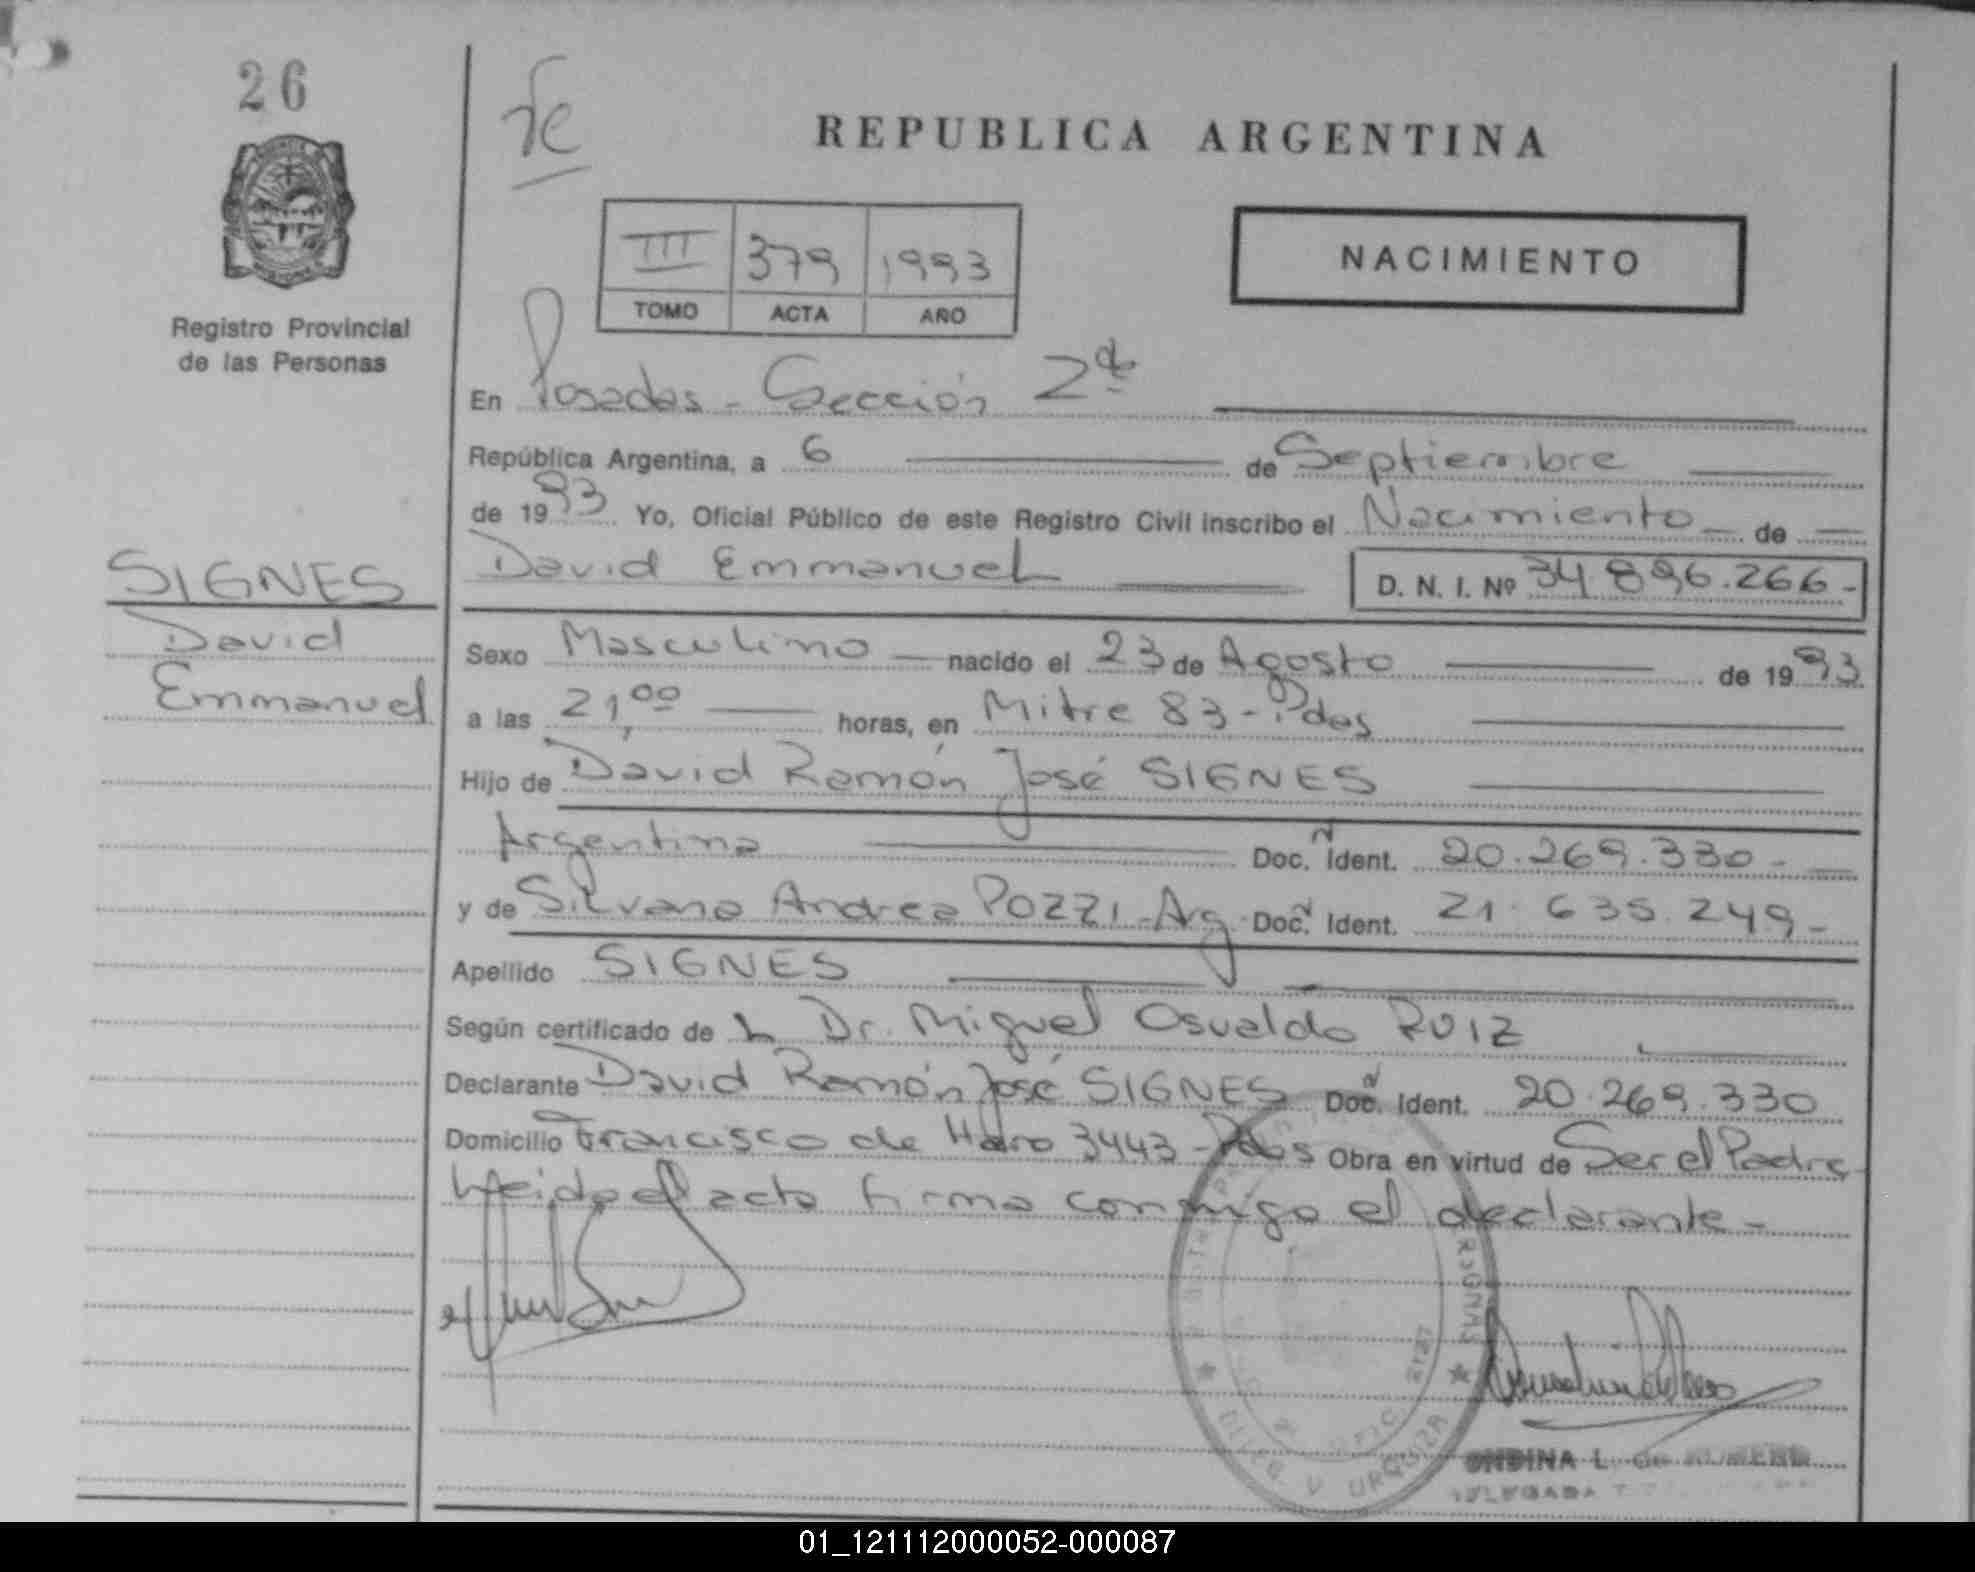 26
REPUBLICA ARGENTINA
III 379 1993
TOMO ACTA AÑO
NACIMIENTO
Registro Provincial
de las Personas
En Posadas - Sección 2da
República Argentina, a 6 de Septiembre
de 1993 Yo, Oficial Público de este Registro Civil inscribo el Nacimiento de
David Emmanuel D. N. I. Nº 34.896.266-
SIGNES
David
Emmanuel
Sexo Masculino nacido el 23 de Agosto de 1993
a las 21,00 horas, en Mitre 83 - Pdas
Hijo de David Ramón José SIGNES
Argentina Doc. Ident. 20.269.330-
y de Silvana Andrea POZZI - Arg. Doc. Ident. 21.635.249-
Apellido SIGNES
Según certificado de L Dr. Miguel Osvaldo RUIZ
Declarante David Ramón José SIGNES Doc. Ident. 20.269.330
Domicilio Francisco de Haro 3443 - Pdas Obra en virtud de Ser el Padre
Leida el acta firma conmigo el declarante -
MISIONES
DELEG. V. URQUIZA
ONDINA L. de
DELEGADA
01_121112000052-000087